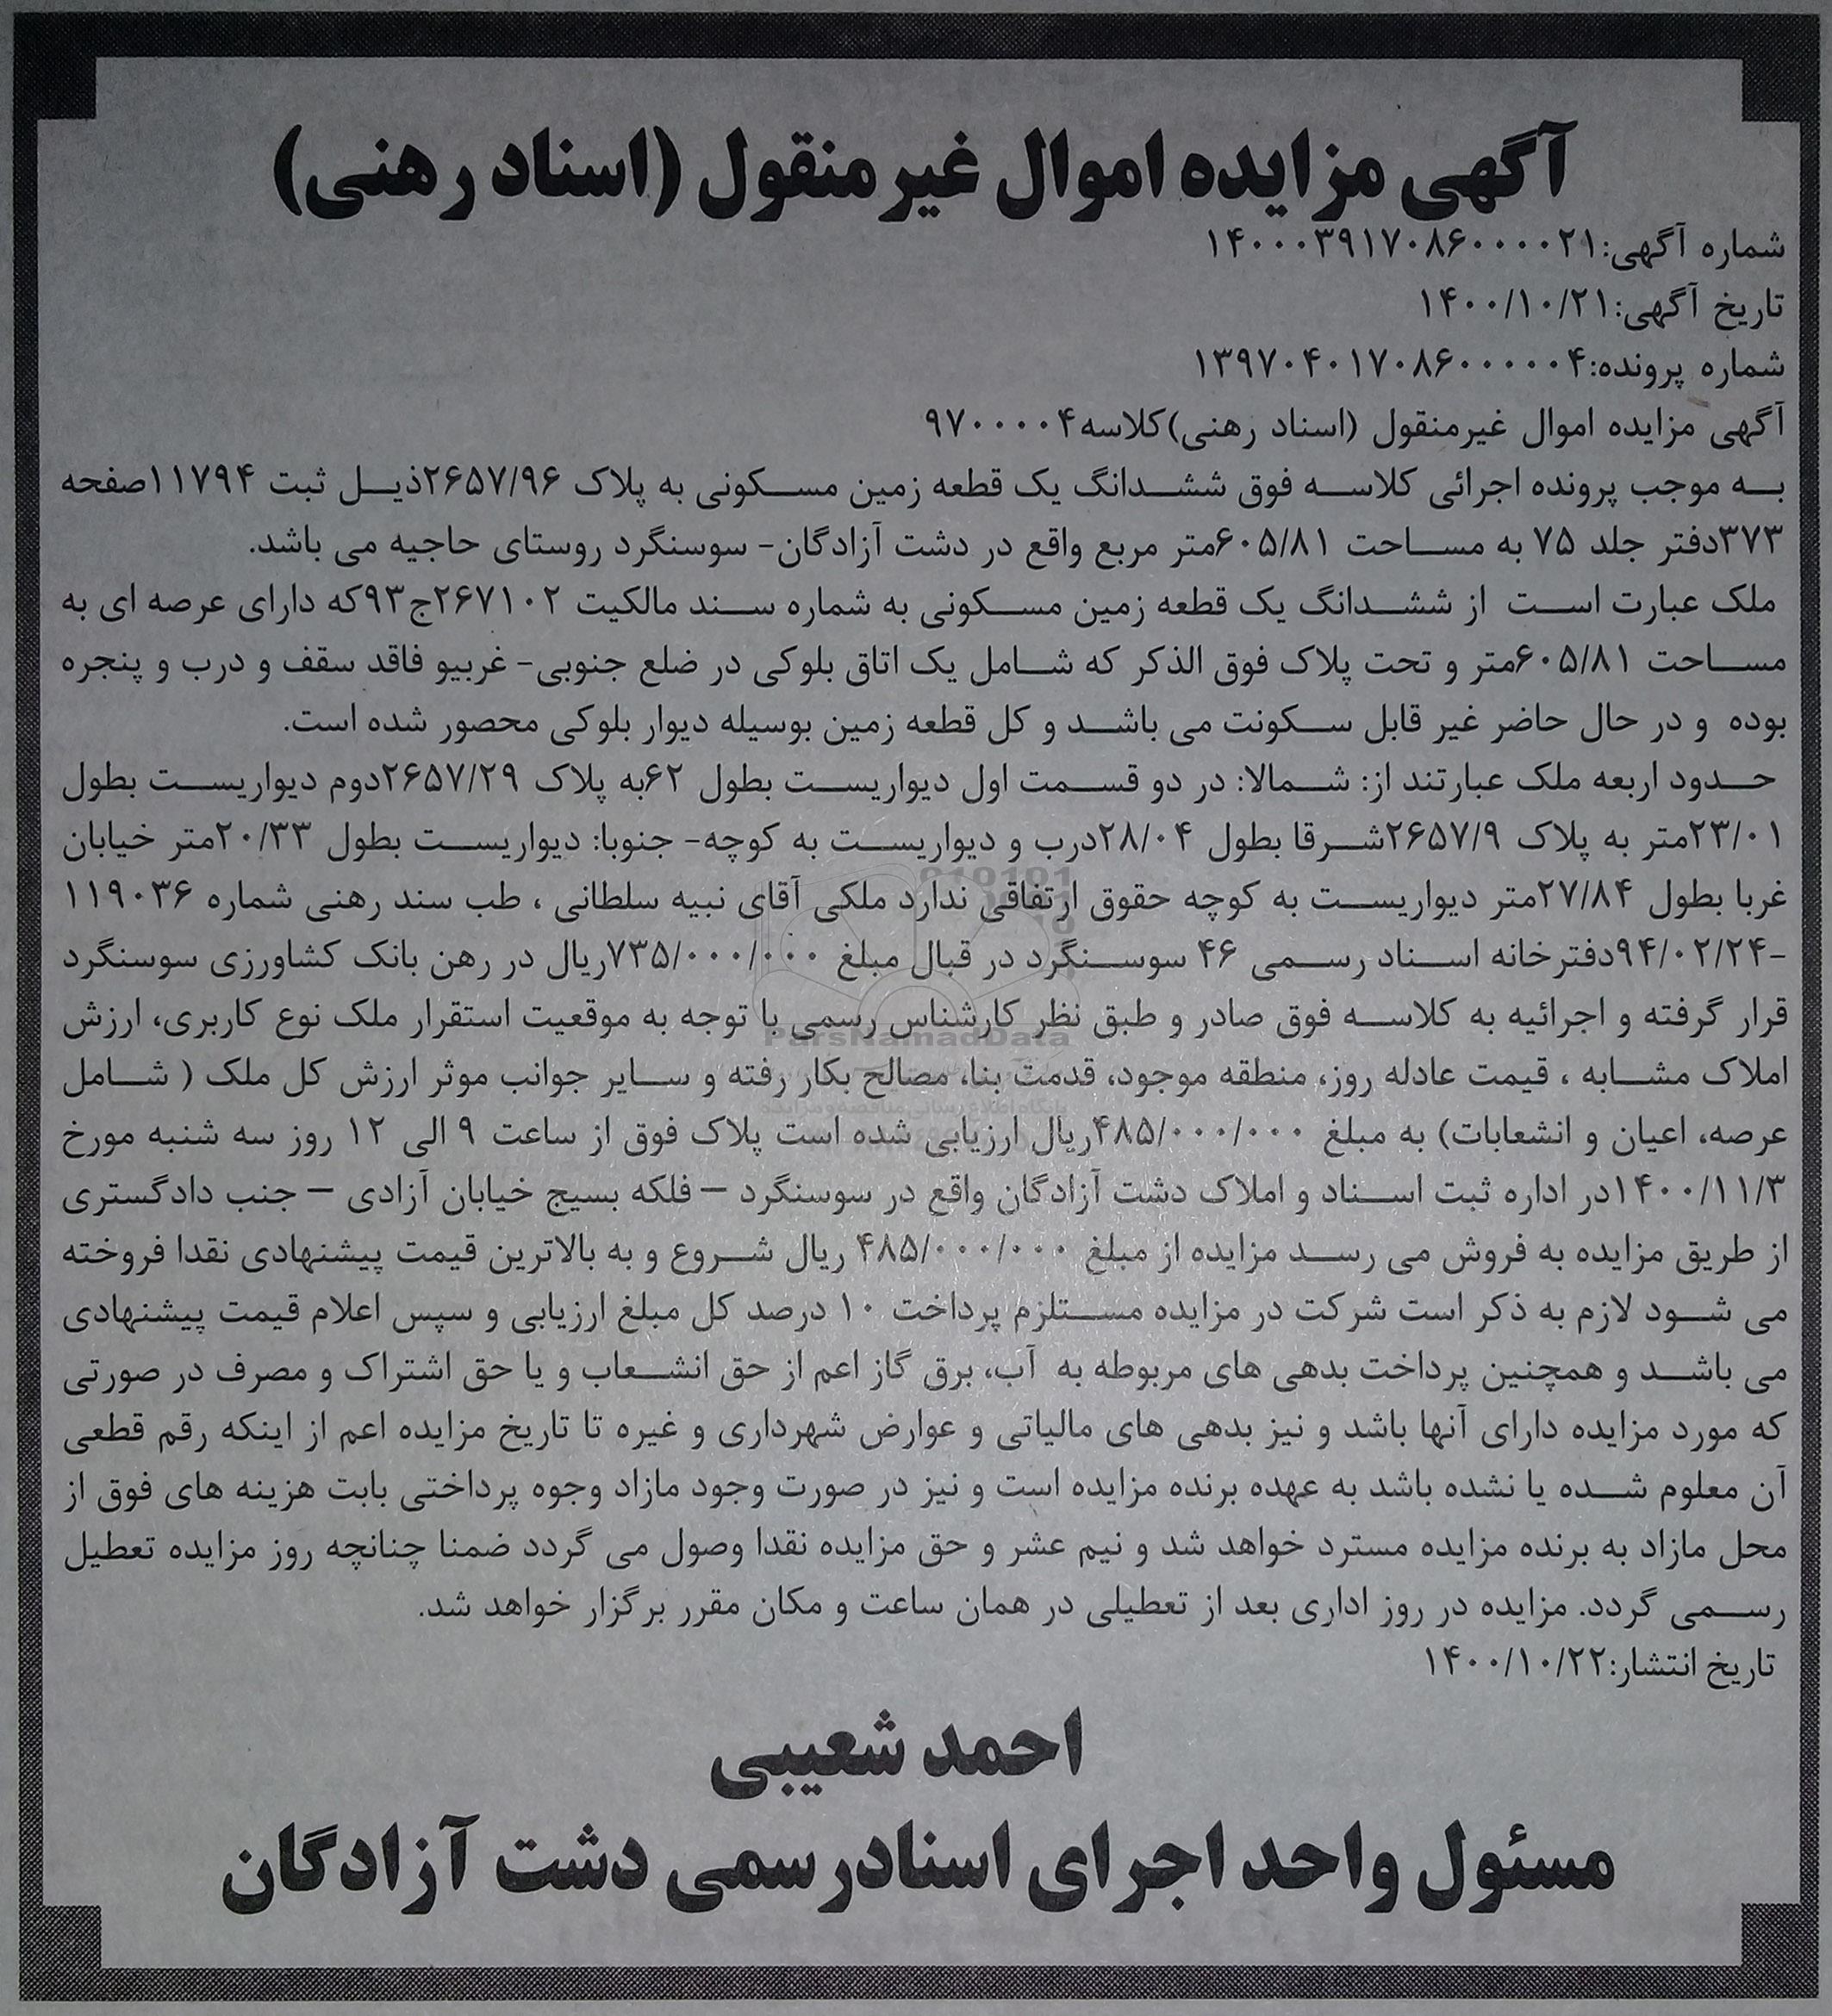 آگهی مزایده اموال غیرمنقول (اسناد رهنی)
شماره آگهی:۱۴۰۰۰۳۹۱۷۰۸۶۰۰۰۰۲۱
تاریخ آگهی:۱۴۰۰/۱۰/۲۱
شماره پرونده:۱۳۹۷۰۴۰۱۷۰۸۶۰۰۰۰۰۴
آگهی مزایده اموال غیرمنقول (اسناد رهنی)کلاسه۹۷۰۰۰۰۴
به موجب پرونده اجرائی کلاسه فوق ششدانگ یک قطعه زمین مسکونی به پلاک ۲۶۵۷/۹۶ذیل ثبت ۱۱۷۹۴صفحه
۳۷۳دفتر جلد ۷۵ به مساحت ۶۰۵/۸۱متر مربع واقع در دشت آزادگان- سوسنگرد روستای حاجیه می باشد.
ملک عبارت است از ششدانگ یک قطعه زمین مسکونی به شماره سند مالکیت ۲۶۷۱۰۲ج۹۳که دارای عرصه ای به
مساحت ۶۰۵/۸۱متر و تحت پلاک فوق الذکر که شامل یک اتاق بلوکی در ضلع جنوبی- غربیو فاقد سقف و درب و پنجره
بوده و در حال حاضر غیر قابل سکونت می باشد و کل قطعه زمین بوسیله دیوار بلوکی محصور شده است.
حدود اربعه ملک عبارتند از: شمالا: در دو قسمت اول دیواریست بطول ۶۲به پلاک ۲۶۵۷/۲۹دوم دیواریست بطول
۲۳/۰۱متر به پلاک ۲۶۵۷/۹شرقا بطول ۲۸/۰۴درب و دیواریست به کوچه- جنوبا: دیواریست بطول ۲۰/۳۳متر خیابان
غربا بطول ۲۷/۸۴متر دیواریست به کوچه حقوق ارتفاقی ندارد ملکی آقای نبیه سلطانی ، طب سند رهنی شماره ۱۱۹۰۳۶
-۹۴/۰۲/۲۴دفترخانه اسناد رسمی ۴۶ سوسنگرد در قبال مبلغ ۷۳۵/۰۰۰/۰۰۰ریال در رهن بانک کشاورزی سوسنگرد
قرار گرفته و اجرائیه به کلاسه فوق صادر و طبق نظر کارشناس رسمی با توجه به موقعیت استقرار ملک نوع کاربری، ارزش
املاک مشابه ، قیمت عادله روز، منطقه موجود، قدمت بنا، مصالح بکار رفته و سایر جوانب موثر ارزش کل ملک ( شامل
عرصه، اعیان و انشعابات) به مبلغ ۴۸۵/۰۰۰/۰۰۰ریال ارزیابی شده است پلاک فوق از ساعت ۹ الی ۱۲ روز سه شنبه مورخ
۱۴۰۰/۱۱/۳در اداره ثبت اسناد و املاک دشت آزادگان واقع در سوسنگرد – فلکه بسیج خیابان آزادی – جنب دادگستری
از طریق مزایده به فروش می رسد مزایده از مبلغ ۴۸۵/۰۰۰/۰۰۰ ریال شروع و به بالاترین قیمت پیشنهادی نقدا فروخته
می شود لازم به ذکر است شرکت در مزایده مستلزم پرداخت ۱۰ درصد کل مبلغ ارزیابی و سپس اعلام قیمت پیشنهادی
می باشد و همچنین پرداخت بدهی های مربوطه به آب، برق گاز اعم از حق انشعاب و یا حق اشتراک و مصرف در صورتی
که مورد مزایده دارای آنها باشد و نیز بدهی های مالیاتی و عوارض شهرداری و غیره تا تاریخ مزایده اعم از اینکه رقم قطعی
آن معلوم شده یا نشده باشد به عهده برنده مزایده است و نیز در صورت وجود مازاد وجوه پرداختی بابت هزینه های فوق از
محل مازاد به برنده مزایده مسترد خواهد شد و نیم عشر و حق مزایده نقدا وصول می گردد ضمنا چنانچه روز مزایده تعطیل
رسمی گردد. مزایده در روز اداری بعد از تعطیلی در همان ساعت و مکان مقرر برگزار خواهد شد.
تاریخ انتشار:۱۴۰۰/۱۰/۲۲
احمد شعیبی
مسئول واحد اجرای اسنادرسمی دشت آزادگان
ParsNamadData